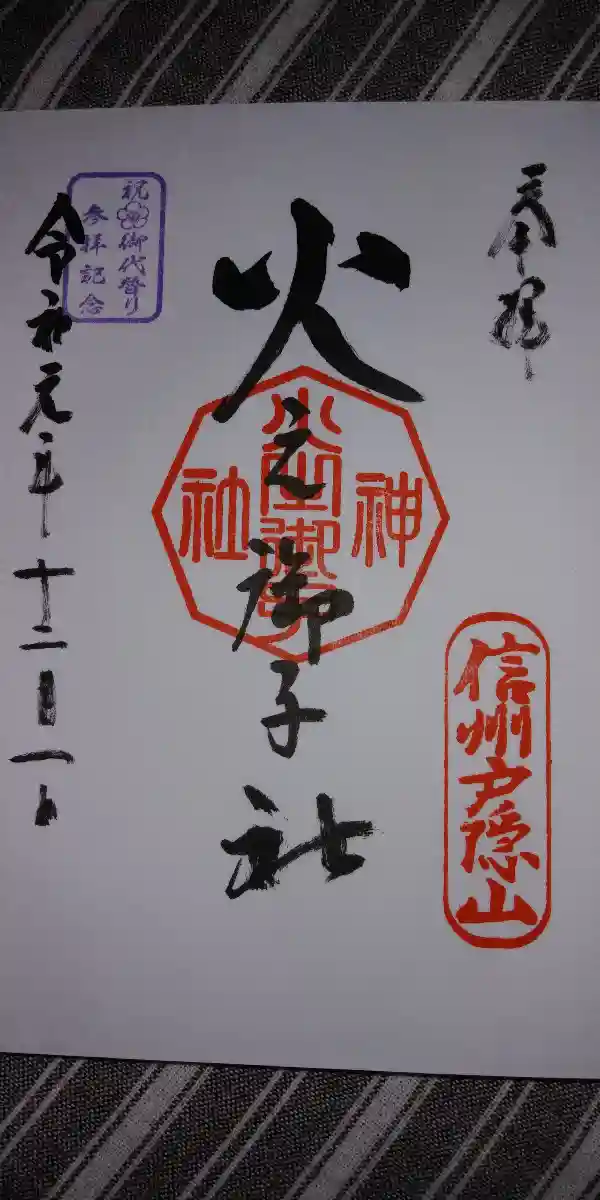 奉拝
火之御子社
神
火之御子
社
信州戸隠山
祝 御代替り
参拝記念
令和元年十二月一日